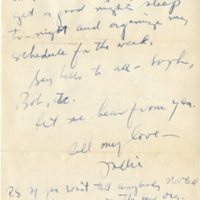 get a good nights sleep
to-night and organize my
schedule for the week.
Say hello to all –
Bob, etc.
Let me hear from you.
all my love –
P.S. If you won't tell anybody